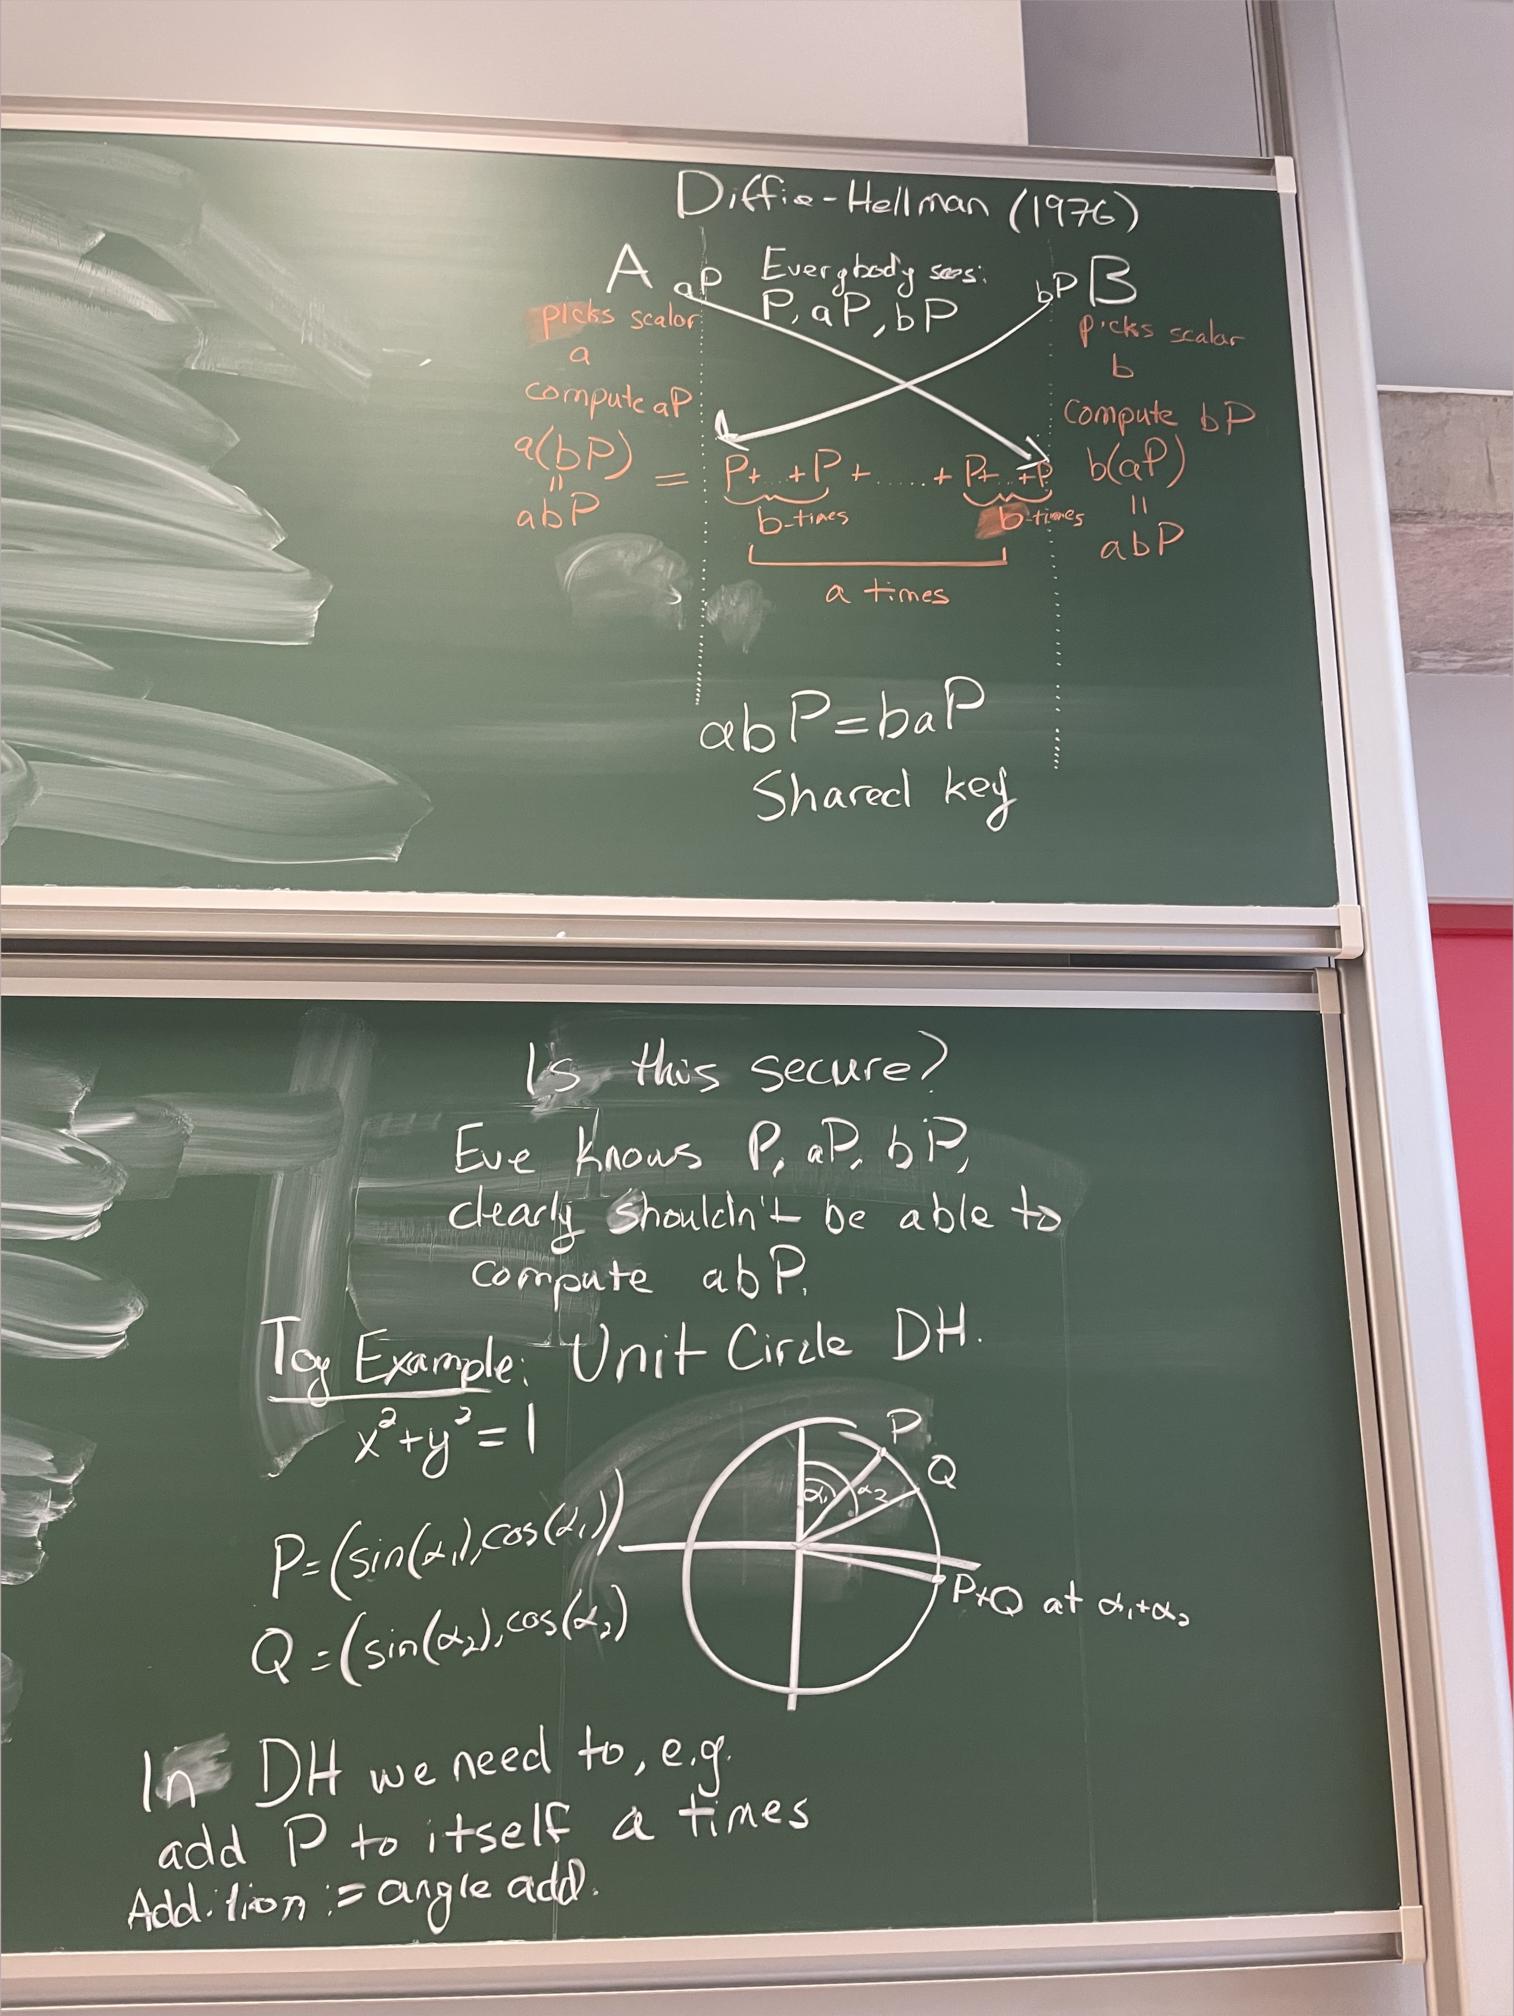 Diffie-Hellman (1976)
A aP Everybody sees: bP B
P, aP, bP
picks scalar
a
compute aP
picks scalar
b
compute bP
a(bP) = P+...+P+......+P+...+P b(aP)
=
abP
b-times b-times
=
abP
a times
abP=baP
Shared key
Is this secure?
Eve knows P, aP, bP,
clearly shouldn't be able to
compute abP.
Toy Example: Unit Circle DH.
x²+y²=1
P=(sin(α₁),cos(α₁))
Q=(sin(α₂),cos(α₂)
P
Q
α₁ α₂
P+Q at α₁+α₂
In DH we need to, e.g.
add P to itself a times
Addition := angle add.